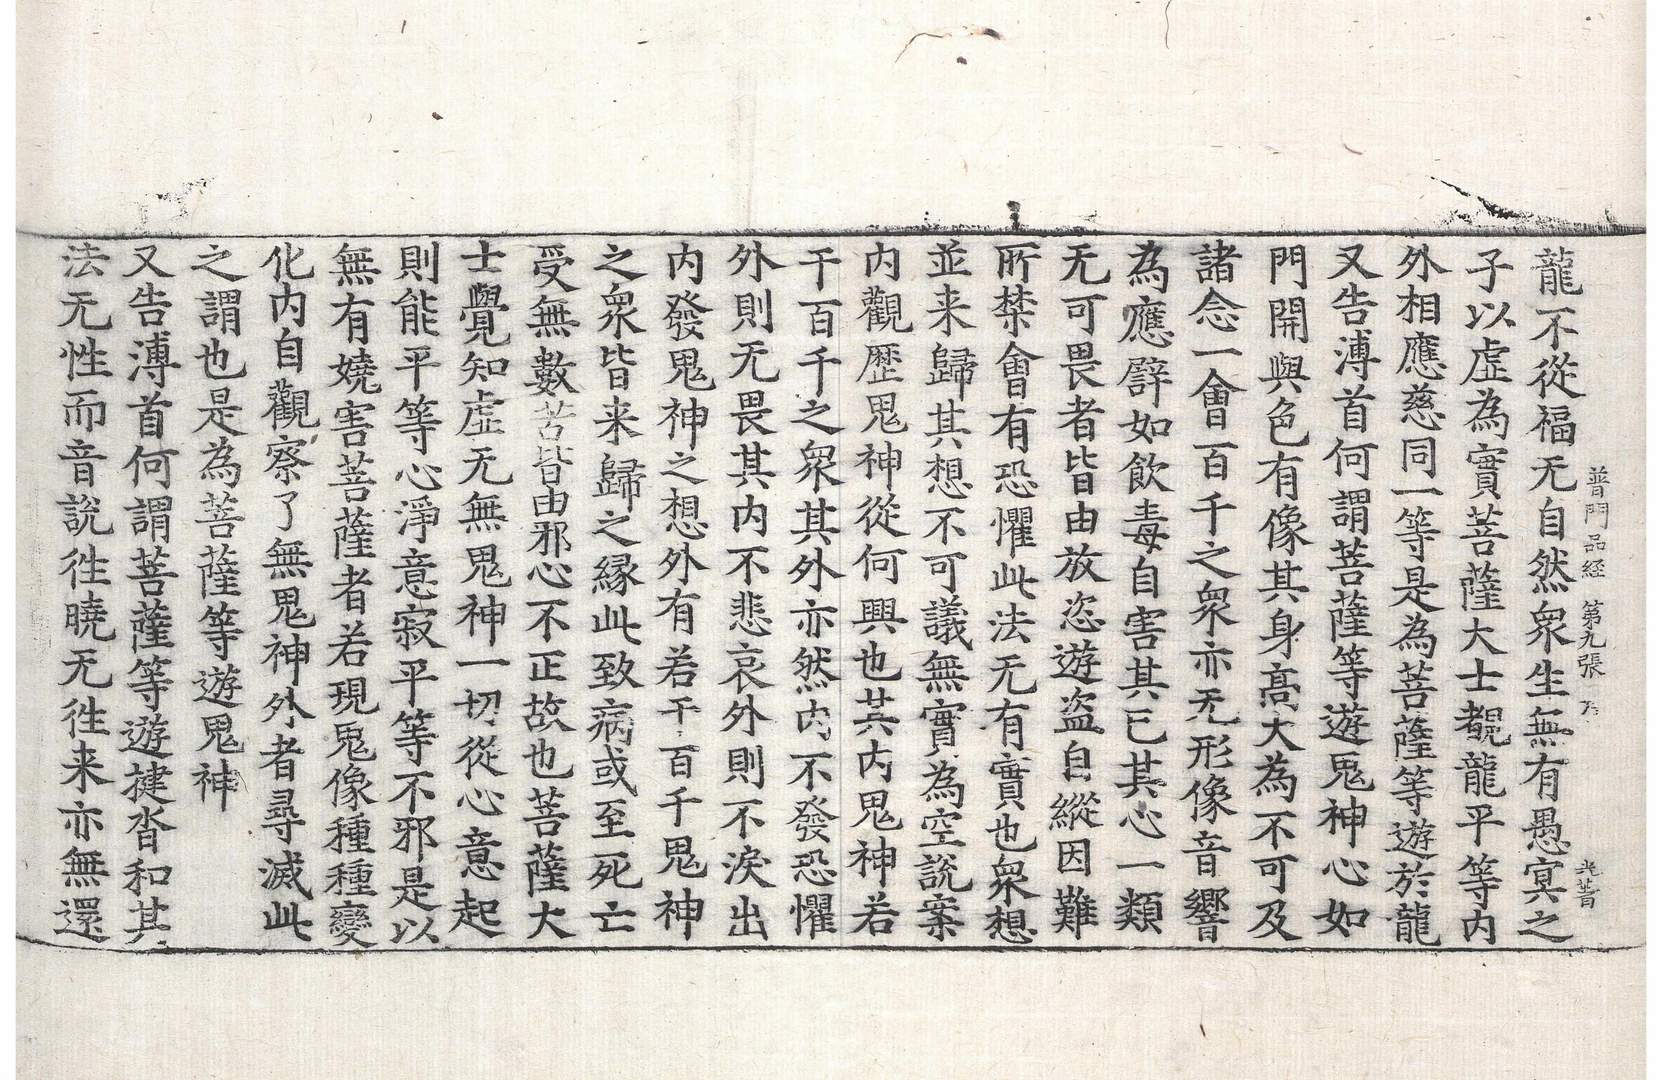 普門品経　第九張　乃
光普
龍不從福无自然衆生無有愚㝠之
子以虛為實菩薩大士覩龍平等内
外相應慈同一等是為菩薩等遊於龍
又告溥首何謂菩薩等遊鬼神心如
門開與色有像其身髙大為不可及
諸念一會百千之衆亦无形像音響
為應譬如飲毒自害其已其心一類
无可畏者皆由放恣遊盗自縱因難
所禁會有恐懼此法无有實也衆想
並来歸其想不可議無實為空說案
内觀歷鬼神從何興也其内鬼神若
千百千之衆其外亦然内不發恐懼
外則无畏其内不悲哀外則不淚出
内發鬼神之想外有若干百千鬼神
之衆皆来歸之縁此致病或至死亡
受無數苦皆由邪心不正故也菩薩大
士覺知虛无無鬼神一切從心意起
則能平等心淨意寂平等不邪是以
無有嬈害菩薩者若現鬼像種種變
化内自觀察了無鬼神外者尋滅此
之謂也是為菩薩等遊鬼神
又告溥首何謂菩薩等遊揵沓和其
法无性而音說徃曉无徃来亦無還